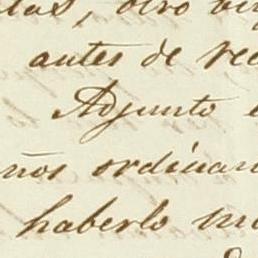 das, otro vi
antes de re
Adjunto
ños ordinan
haberlo m